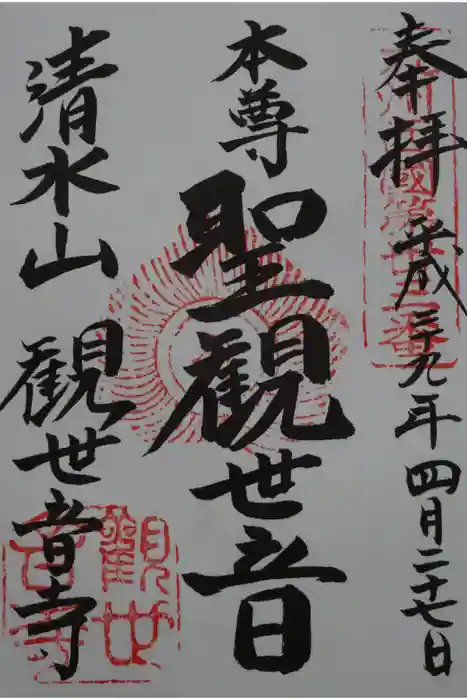 奉拝 平成二十九年四月二十七日
本尊 聖觀世音
清水山 觀世音寺
觀世
音寺